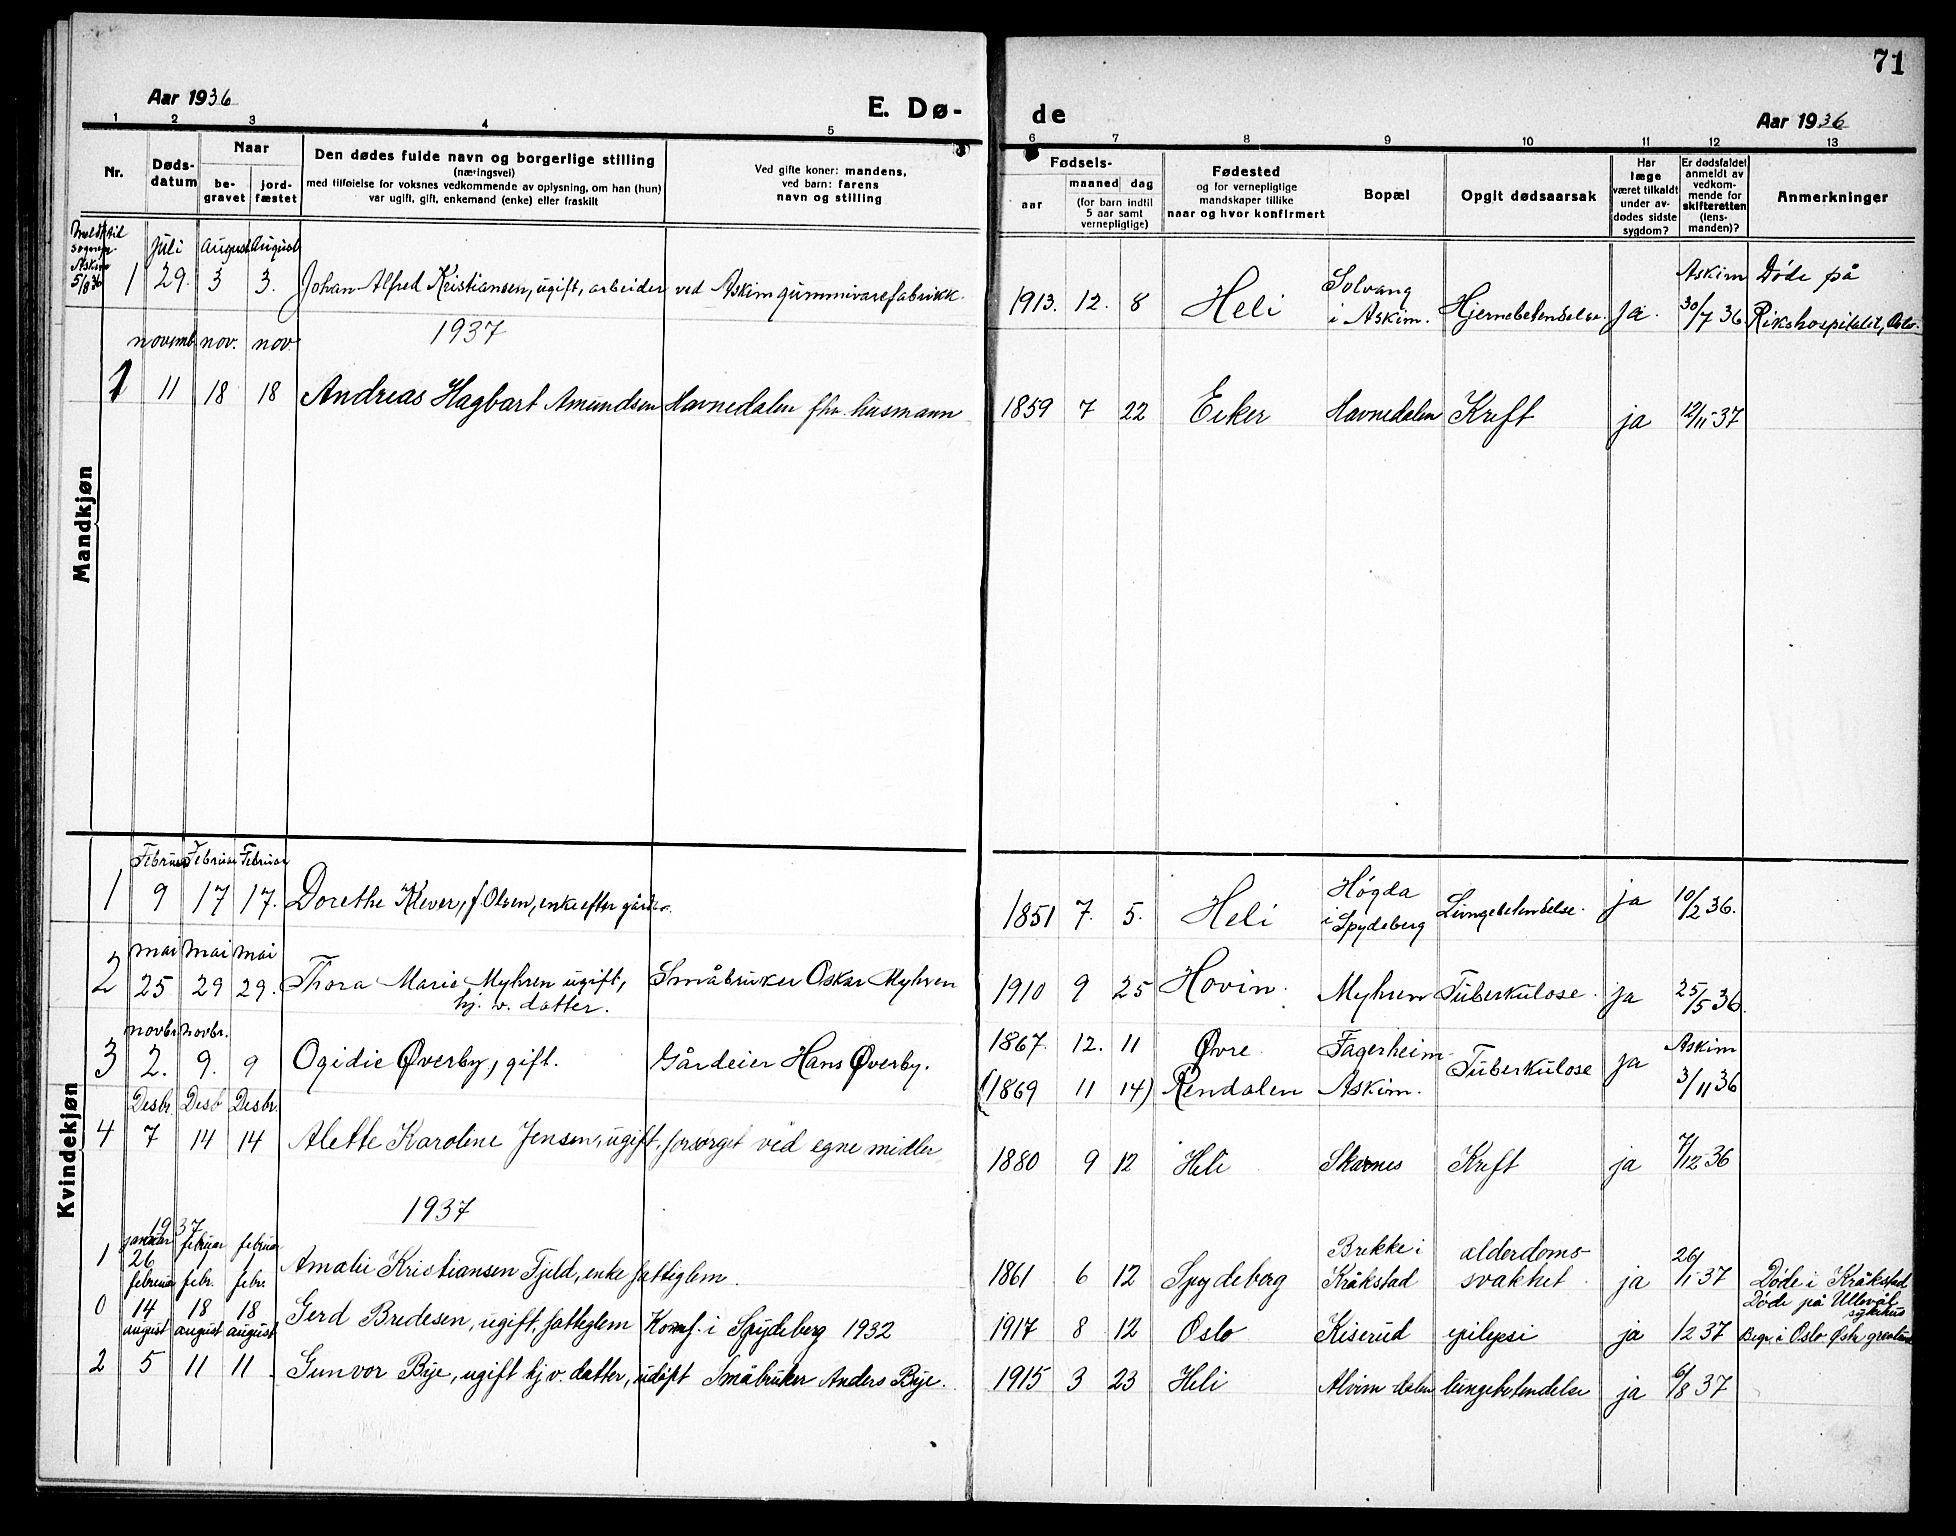 71
Aar 1936
E. Dø-
de
Aar 1936
1 2 3 4 5 6 7 8 9 10 11 12 13
Nr.
Døds-
datum
Naar
be-
gravet
jord-
fæstet
Den dødes fulde navn og borgerlige stilling
(næringsvei)
med tilføielse for voksnes vedkommende av oplysning, om han (hun)
var ugift, gift, enkemand (enke) eller fraskilt
Ved gifte koner: mandens,
ved barn: farens
navn og stilling
Fødsels-
aar
maaned dag
(for barn indtil
5 aar samt
vernepligtige)
Fødested
og for vernepligtige
mandskaper tillike
naar og hvor konfirmert
Bopæl
Opgit dødsaarsak
Har
læge
været tilkaldt
under av-
dødes sidste
sygdom?
Er dødsfaldet
anmeldt av
vedkom-
mende for
skifteretten
(lens-
manden)?
Anmerkninger
Mandkjøn
Meldt til
sognepr.
Askim
5/8 36
juli august august
1 29. 3 3. Johan Alfred Kristiansen, ugift, arbeider ved Askim gummivarefabrikk.
1913. 12. 8 Heli Solvang
i Askim. Hjernebetendelse. Ja. Askim
30/7 36 Døde på
Rikshospitalet, Oslo.
1937
novemb. nov. nov.
1 11 18 18 Andreas Hagbart Amundsen Havnedalen fhv. husmann
1859 7 22 Eiker Havnedalen Kreft ja 12/11-37
Kvindekjøn
Februar Februar Februar
1 9 17 17. Dorethe Klever, f. Olsen, enke efter gårdbr.
1851 7. 5. Heli Høgda
i Spydeberg Lungebetendelse. ja 10/2 36.
mai mai mai
2 25 29 29. Thora Marie Myhren ugift,
hj. v. datter. Småbruker Oskar Myhren
1910 9 25 Hovin. Myhren Tuberkulose. ja 25/5 36.
novbr. novbr.
3 2. 9. 9 Ogidie Øverby, gift. Gårdeier Hans Øverby.
1867. 12. 11
(1869 11 14) Øvre
Rendalen Fagerheim
Askim. Tuberkulose ja Askim
3/11 36
Desbr. Desb Desbr.
4 7 14 14 Alette Karoline Jensen, ugift, forsørget ved egne midler
1880 9 12 Heli Skarnes Kreft ja 7/12-36
1937
1937
januar februar februar
1 26 1 1 Amalie Kristiansen Fjeld, enke fattiglem.
1861 6 12 Spydeberg Brekke i
Kråkstad alderdoms-
svakhet. ja 26/1-37 Døde i Kråkstad
februar febr. febr.
0 14 18 18 Gerd Bredesen, ugift, fattiglem Konf. i Spydeberg 1932
1917 8 12 Oslo Kiserud epilepsi ja Døde på Ullevål
sykehus
Begr. i Oslo
august august august
2 5 11 11. Gunvor Bye, ugift hj. v. datter, Småbruker Anders Bye.
1915 3 23 Heli lungebetendelse ja 6/8 37